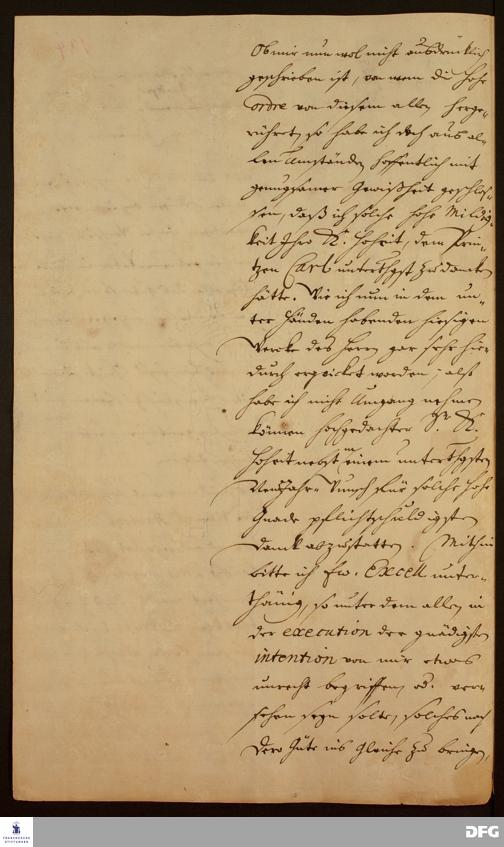 Ob mir nun wol nicht ausdrücklich
geschrieben ist, von wem die hohe
ordre von diesem allen herge-
rühret, so habe ich doch aus al-
len Umständen hoffentlich mit
genugsamer Gewißheit geschlos-
sen, daß ich solche hohe Mildig-
keit Ihro K. Hoheit, dem Prin-
tzen Carl unterthgst zu dancken
hätte. Wie ich nun in dem un-
ter Händen habenden hiesigen
Wercke des Herrn gar sehr hie-
durch erquicket worden; also
habe ich nicht Umgang nehmen
können hochgedachter Sr. K.
Hoheit nebst einem unterthgsten
Neujahrs-Wunsch für solche hohe
Gnade pflichtschuldigsten
Danck abzustatten. Mithin
bitte ich Ew. Excell. unter-
thänig, so unter dem allen in
der execution der gnädigsten
intention von mir etwas
unrecht begriffen od. ver-
sehen seyn solte, solches nach
Dero Güte ins Gleiche zu bringen,
FRANCKESCHE
STIFTUNGEN
DFG